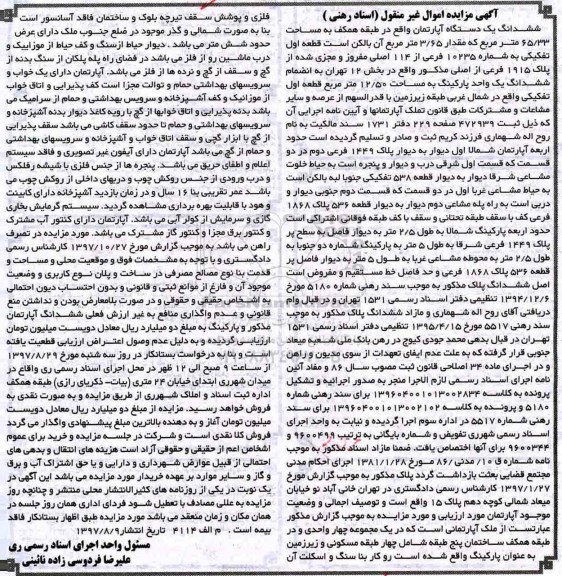 آگهی مزایده اموال غیر منقول (اسناد رهنی)
ششدانگ یک دستگاه آپارتمان واقع در طبقه همکف به مساحت
۶۵/۳۳ متر مربع که مقدار ۳/۶۵ متر مربع آن بالکن است قطعه اول
تفکیکی به شماره ۱۰۲۳۵ فرعی از ۱۱۴ اصلی مفروز و مجزی شده از
پلاک ۱۹۱۵ فرعی از اصلی مذکور واقع در بخش ۱۲ تهران به انضمام
ششدانگ یک واحد پارکینگ به مساحت ۱۲/۵۰ متر مربع قطعه اول
تفکیکی واقع در شمال غربی طبقه زیرزمین با قدرالسهم از عرصه و سایر
مشاعات و مشترکات طبق قانون تملک آپارتمانها و آیین نامه اجرایی آن
که ذیل ثبت ۴۷۲۹۳۹ صفحه ۲۲۹ دفتر ۱۷۲۱ سند مالکیت به نام
روح اله شهماری فرزند کریم ثبت و صادر و تسلیم گردیده است حدود
اربعه آپارتمان شمالا اول دیوار به دیوار پلاک ۱۴۴۹ فرعی دوم در دو
قسمت که قسمت اول شرقی درب و دیوار و پنجره است به حیاط خلوت
مشاعی شرقا دیوار به دیوار قطعه ۵۳۸ تفکیکی جنوبا لبه بالکن است
به حیاط مشاعی غربا اول در دو قسمت که قسمت دوم جنوبی دیوار و
دربی است به راه پله مشاعی دوم دیوار به دیوار قطعه ۵۳۶ پلاک ۱۸۶۸
فرعی کف با سقف طبقه تحتانی و سقف با کف طبقه فوقانی اشتراکی است
حدود اربعه پارکینگ شمالا به طول ۲/۵ متر به دیوار فاصل به سطح بر
پلاک ۱۴۴۹ فرعی شرقا به طول ۵ متر به پارکینگ شماره دو جنوبا به
طول ۲/۵ متر به محوطه مشاعی غربا به طول ۵ متر به دیوار فاصل بر
قطعه ۵۳۶ پلاک ۱۸۶۸ فرعی و حد فاصل خط مستقیم و مفروض است
اصل ششدانگ پلاک مذکور به موجب سند رهنی شماره ۵۱۸۰ مورخ
۱۳۹۴/۱۲/۶ تنظیمی دفتر اسناد رسمی ۱۵۳۱ تهران و در قبال وام
دریافتی آقای روح اله شهماری و مازاد ششدانگ پلاک مذکور به موجب
سند رهنی ۵۵۱۷ مورخ ۱۳۹۵/۴/۱۵ تنظیمی دفتر اسناد رسمی ۱۵۳۱
تهران در قبال بدهی محمد جودی کیوج در رهن بانک ملی شعبه میعاد
جنوبی قرار گرفته که به علت عدم ایفای تعهدات از سوی مدیون و راهن
و در اجرای ماده ۳۴ اصلاحی قانون ثبت مصوب سال ۸۶ و مفاد آئین
نامه اجرای اسناد رسمی لازم الاجرا منجر به صدور اجرائیه و تشکیل
پرونده به کلاسه ۱۳۹۶۰۴۰۰۱۰۱۳۰۰۲۸۳۴ برای سند رهنی شماره
۵۱۸۰ و پرونده به کلاسه ۱۳۹۶۰۴۰۰۱۰۱۳۰۰۲۱۰۲ برای سند
رهنی شماره ۵۵۱۷ در اداره سوم اجرا گردیده و نیابت به واحد اجرای
اسناد رسمی شهرری تفویض و شماره بایگانی به ترتیب ۹۶۰۰۴۹۶ و
۹۶۰۰۳۴۴ برای آنها اختصاص یافت. ضمنا مازاد اسناد مذکور به موجب
نامه شماره ق ۱۰/ مدنی /۸۶ مورخ ۱۳۸۱/۱/۲۸ اجرای احکام مدنی
مجتمع قضایی بعثت بازداشت گردد پلاک مذکور به موجب گزارش مورخ
۱۳۹۷/۱/۲۷ کارشناس رسمی دادگستری در تهران خانی آباد نو خیابان
میعاد شمالی کوچه دهم پلاک ۱۵ واقع است و توصیف اجمالی و وضعیت
موجود آپارتمان مورد ارزیابی و مورد مزایده به موجب گزارش مذکور
عبارتست از ملک آپارتمانی است که در یک مجموعه چهار واحدی و در
طبقه همکف ساختمان پنج طبقه شامل چهار طبقه مسکونی و زیرزمین
به عنوان پارکینگ واقع شده است رو کار بنا سنگ و اسکلت آن
فلزی و پوشش سقف تیرچه بلوک و ساختمان فاقد آسانسور است
بنا به صورت شمالی و گذر موجود در ضلع جنوب ملک دارای عرض
حدود شش متر می باشد. دیوار حیاط ازسنگ و کف حیاط از موزاییک و
درب ماشین رو از فلز می باشد در فضای راه پله پلکان از سنگ بدنه از
گچ و سقف از گچ و نرده ها از فلز می باشد. آپارتمان دارای یک خواب و
سرویسهای بهداشتی حمام و توالت مجزا است کف پذیرایی و اتاق خواب
از موزائیک و کف آشپزخانه و سرویس بهداشتی و حمام از سرامیک می
باشد بدنه پذیرایی و اتاق خوابها از گچ با رویه کاغذ دیوار بدنه آشپزخانه و
سرویسهای بهداشتی و حمام تا حدود سقف کاشی می باشد سقف پذیرایی
از گچ با ابزار گچی و سقف اتاق خواب و آشپزخانه و سرویسهای بهداشتی
و حمام از گچ می باشد آپارتمان دارای آیفون غیر تصویری و فاقد سیستم
اعلام و اطفای حریق می باشد. پنجره ها از جنس فلزی با شیشه رفلکس
و درب ورودی از جنس روکش چوب و دربهای داخلی از روکش چوب می
باشد عمر تقریبی بنا ۱۶ سال و در زمان بازدید آشپزخانه دارای کابینت
و هود با قابلیت بهره برداری مشاهده گردید. سیستم گرمایش بخاری
گازی و سرمایش از کولر آبی می باشد. آپارتمان دارای کنتور آب مشترک
و کنتور برق مجزا و کنتور گاز مشترک می باشد. مورد مزایده در تصرف
راهن می باشد به موجب گزارش مورخ ۱۳۹۷/۱۰/۲۷ کارشناس رسمی
دادگستری و با توجه به مشخصات فوق و موقعیت محلی و مساحت و
قدمت بنا نوع مصالح مصرفی در ساخت و پلان نوع کاربری و وضعیت
موجود آن و فارغ از موانع ثبتی و قانونی و بدون احتساب دیون احتمالی
به اشخاص حقیقی و حقوقی و در صورت بلامعارض بودن و نداشتن منع
قانونی و عدم واگذاری منافع به غیر ارزش فعلی ششدانگ آپارتمان
مذکور و پارکینگ به مبلغ دو میلیارد ریال معادل دویست میلیون تومان
ارزیابی گردیده و به دلیل عدم وصول اعتراض ارزیابی قطعیت یافته
است و بنا به درخواست بستانکار در روز سه شنبه مورخ ۱۳۹۷/۸/۲۹
از ساعت ۹ صبح الی ۱۲ ظهر در محل اجرای اسناد رسمی ری واقاع در
میدان شهرری ابتدای خیابان ۲۴ متری (بیات- ذکریای رازی) طبقه همکف
اداره ثبت اسناد و املاک شهرری از طریق مزایده و به صورت نقدی به
فروش خواهد رسید. مزایده از مبلغ دو میلیارد ریال معادل دویست
میلیون تومان آغاز و به دهنده بالاترین مبلغ پیشنهادی واگذار می گردد
فروش کلا نقدی است و شرکت در جلسه مزایده و خرید برای عموم
اشخاص اعم از حقیقی و حقوقی آزاد است هزینه های انتقال و بدهی های
احتمالی از قبیل عوارض شهرداری و دارایی و یا حق اشتراک آب و برق
و گاز و سایر موارد بر عهده خریدار مورد مزایده می باشد این آگهی در
یک نوبت در یکی از روزنامه های کثیرالانتشار محلی منتشر و چنانچه روز
مزایده به عللی مصادف با تعطیل شود فردای اداری همان روز جلسه در
همان مکان و زمان منعقد می باشد مورد مزایده طبق اظهار بستانکار فاقد
بیمه است. م الف ۴۱۱۴ تاریخ انتشار ۱۳۹۷/۸/۹
مسئول واحد اجرای اسناد رسمی ری
علیرضا فردوسی زاده نائینی